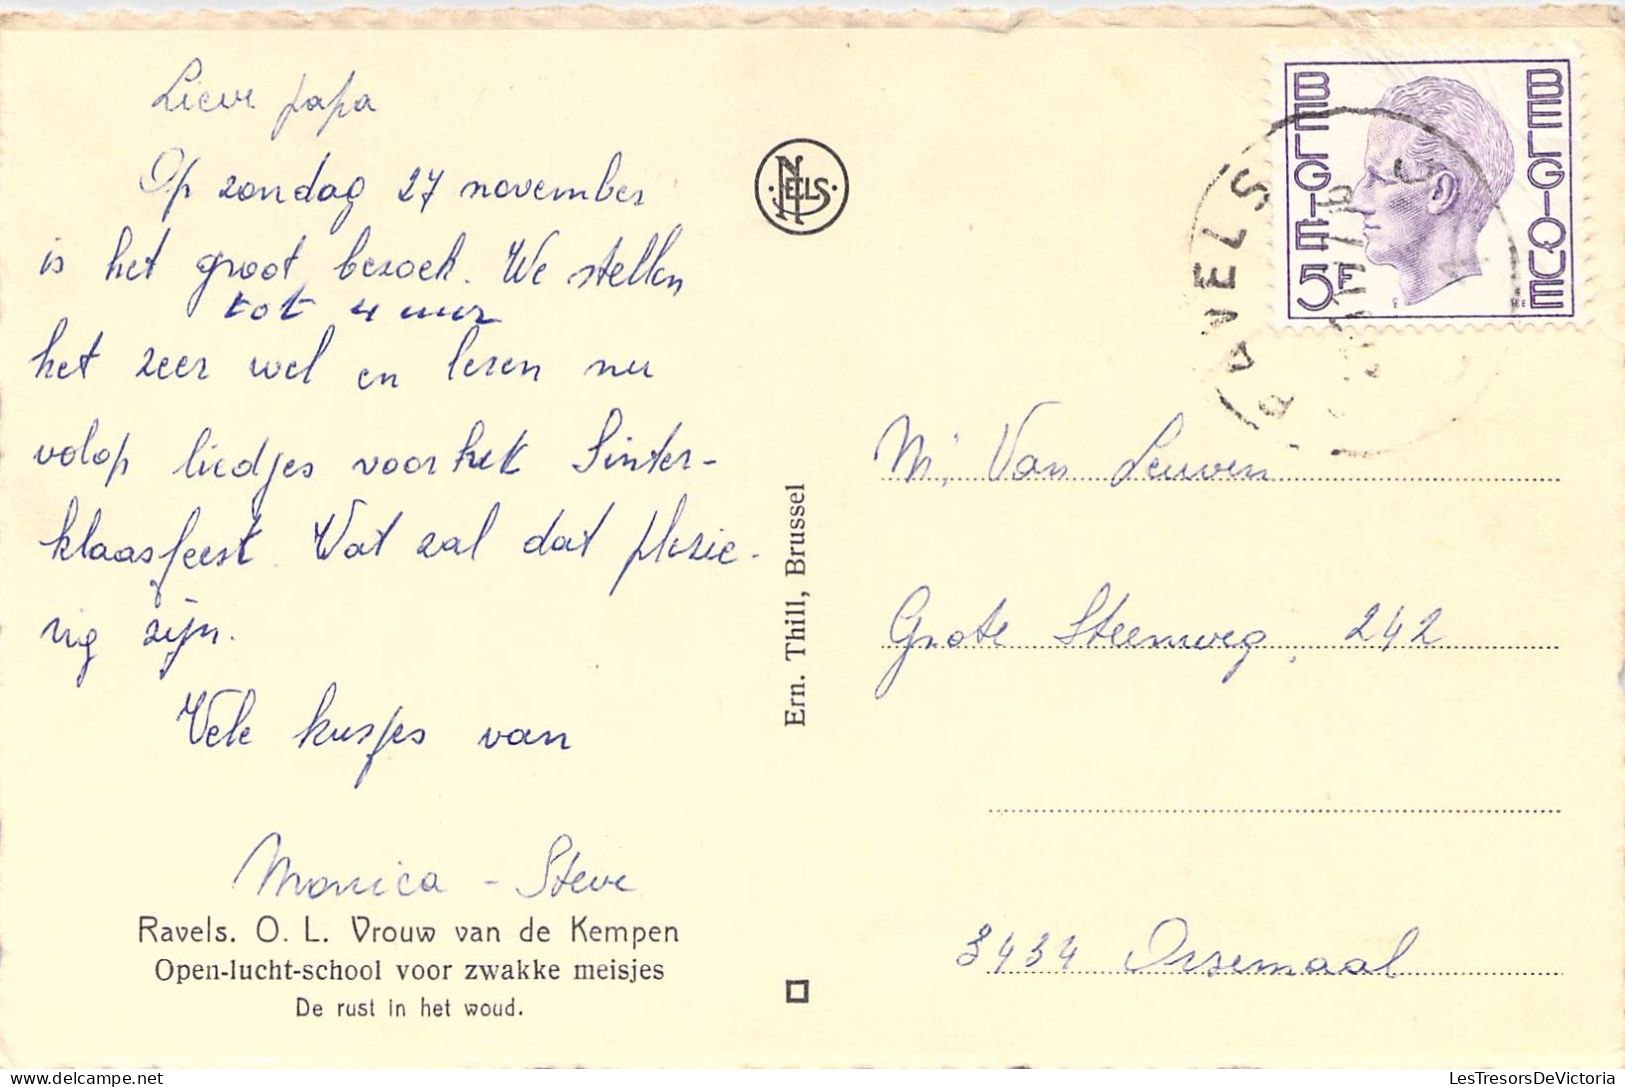 Lieve papa
Op zondag 27 november
is het groot bezoek. We stellen
tot 4 uur
het zeer wel en leren nu
volop liedjes voor het Sinter-
klaasfeest. Wat zal dat plezie-
rig zijn.
Vele kusjes van
Monica - Steve
Ravels. O. L. Vrouw van de Kempen
Open-lucht-school voor zwakke meisjes
De rust in het woud.
NELS
Ern. Thill, Brussel
BELGIE
BELGIQUE
5F
RAVELS
M. Van Leuven
Grote Steenweg, 242
3434 Orsmaal
LesTresorsDeVictoria